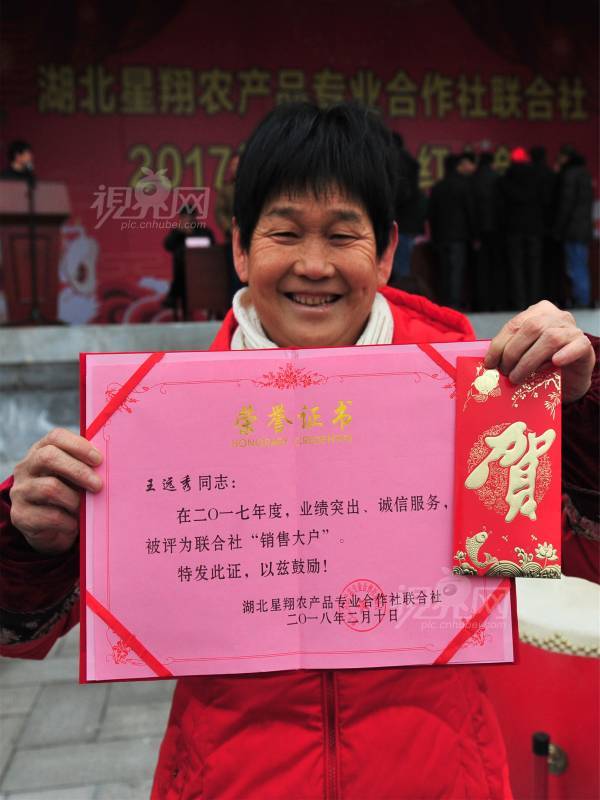 湖北星翔农产品专业合作社联合社
2017
红
视界网
pic.cnhubei.com
荣誉证书
HONORARY CREDENTIAL
贺
王远秀同志：
在二〇一七年度，业绩突出、诚信服务，
被评为联合社“销售大户”。
特发此证，以兹鼓励！
湖北星翔农产品专业合作社联合社
二〇一八年二月十日
视界网
pic.cnhubei.com